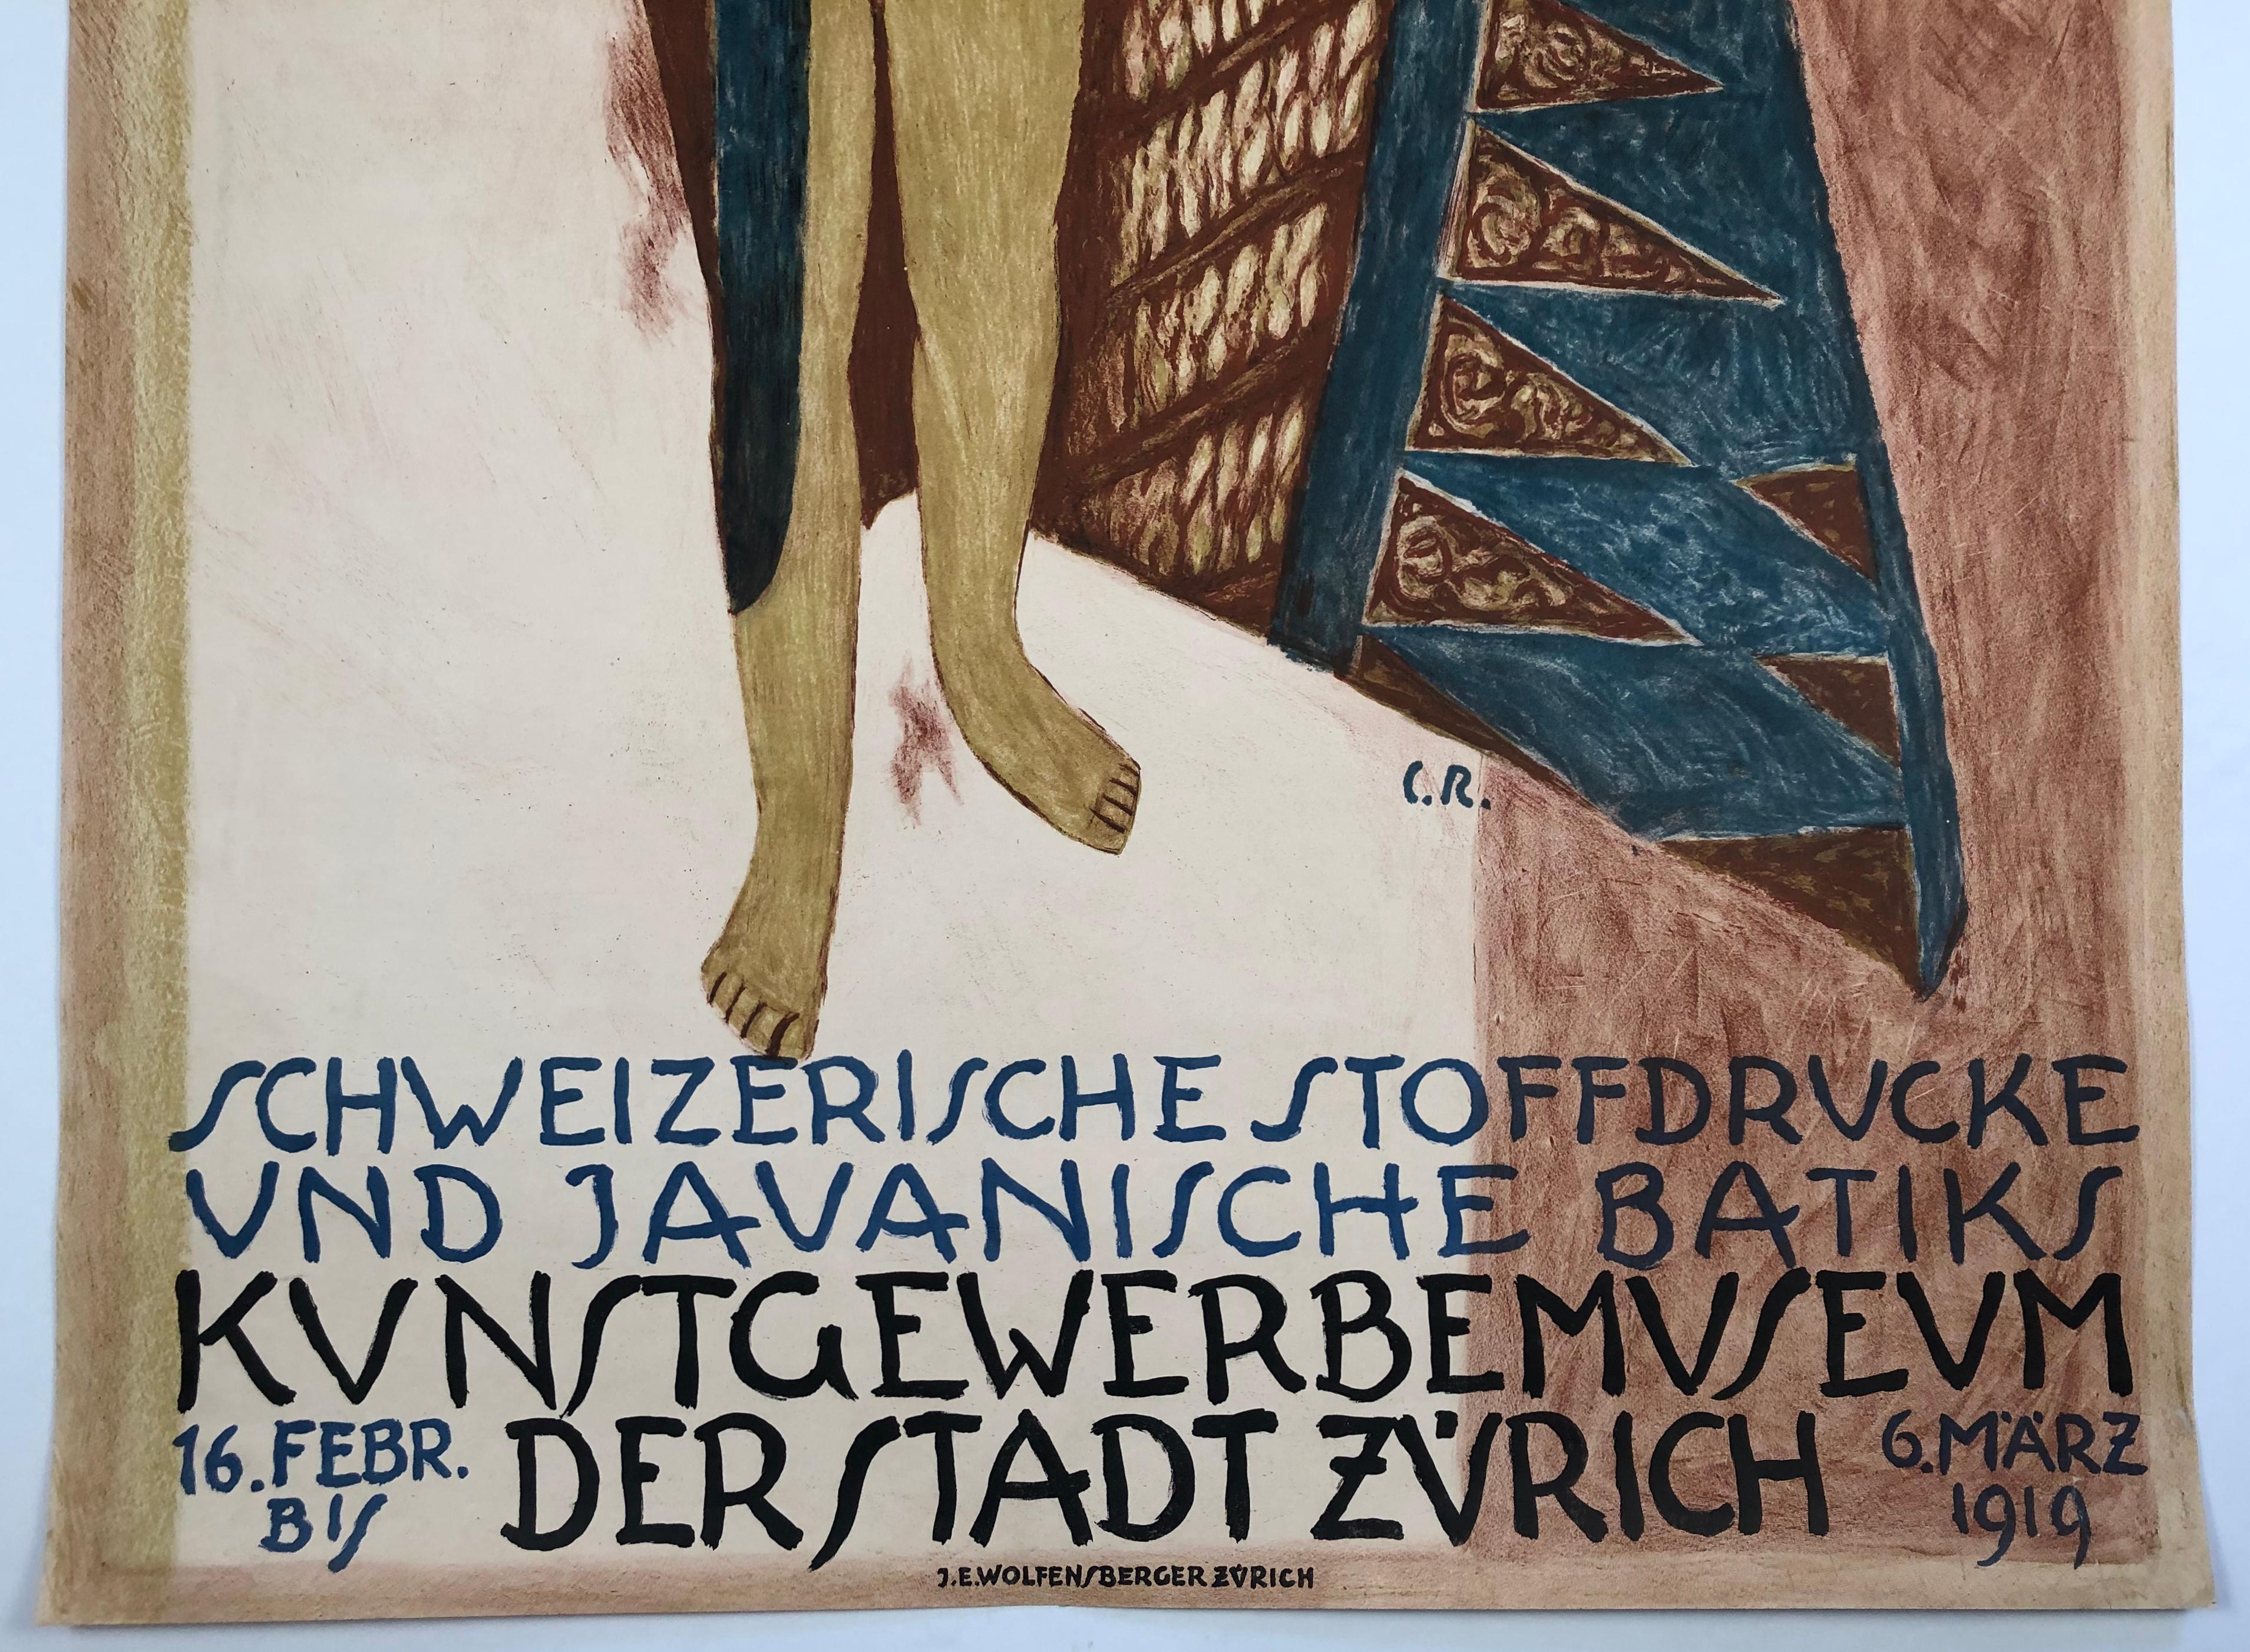 C.R.
SCHWEIZERISCHE STOFFDRUCKE
UND JAVANISCHE BATIKS
KUNSTGEWERBEMUSEUM
16. FEBR. BIS
DER STADT ZÜRICH
6. MÄRZ 1919
J.E. WOLFENSBERGER ZÜRICH